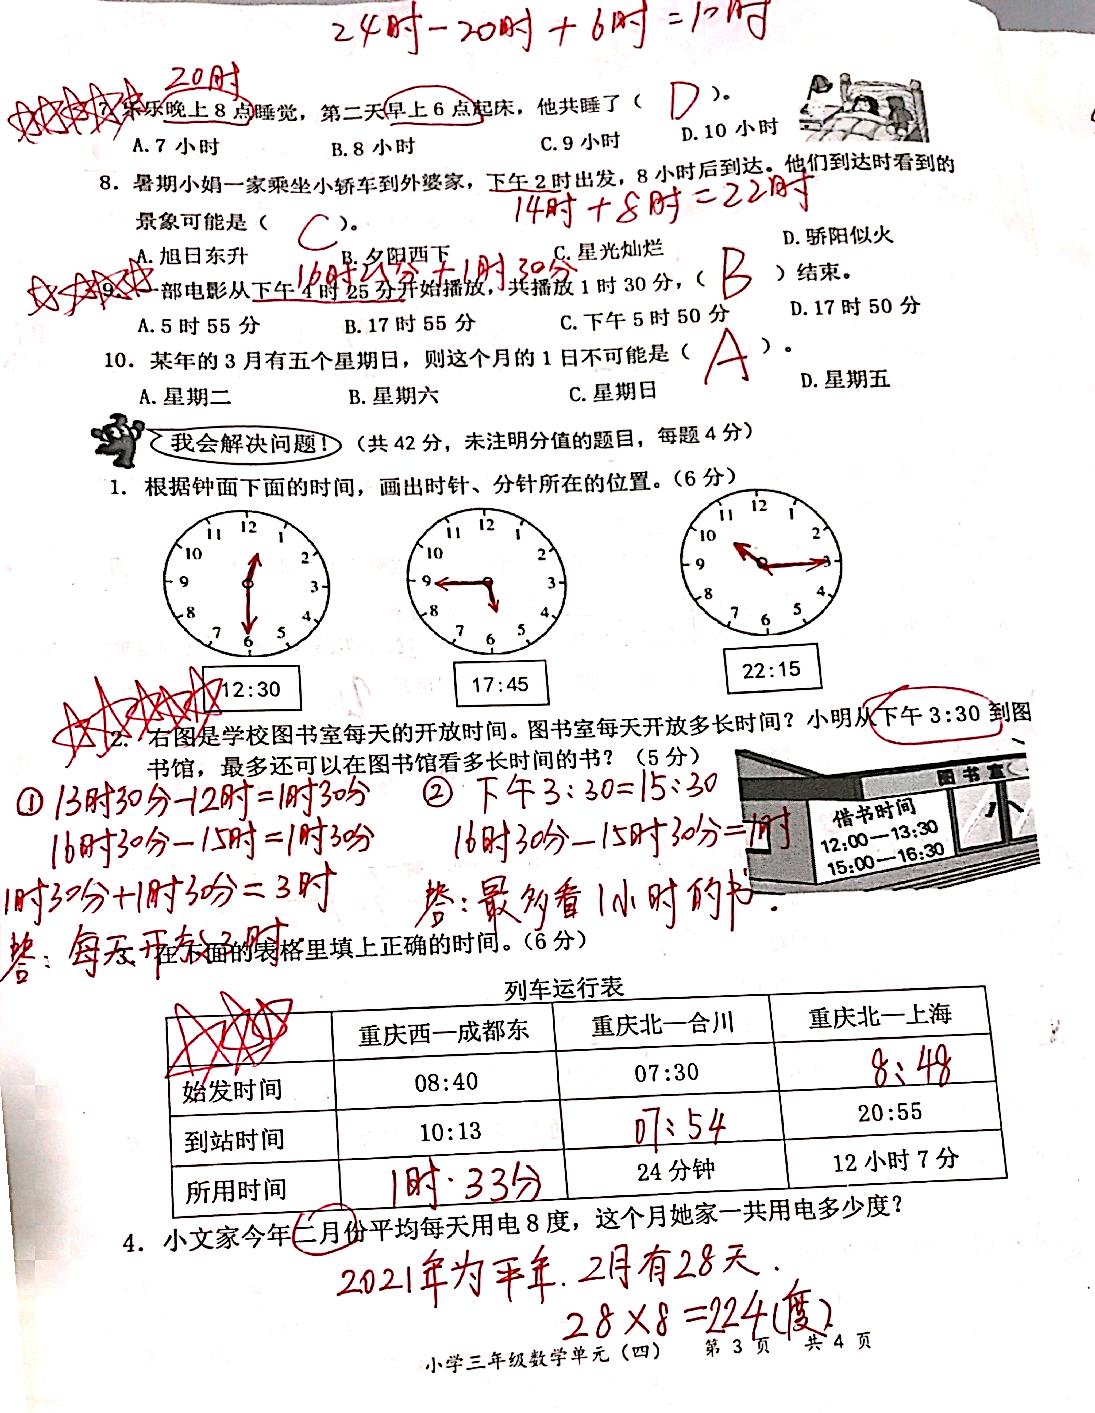 24时-20时+6时=10时
20时
7. 乐乐晚上8点睡觉，第二天早上6点起床，他共睡了（ D ）。
A.7小时 B.8小时 C.9小时 D.10小时
8. 暑期小娟一家乘坐小轿车到外婆家，下午2时出发，8小时后到达。他们到达时看到的
14时+8时=22时
景象可能是（ C ）。
A.旭日东升 B.夕阳西下 C.星光灿烂 D.骄阳似火
16时25分+1时30分
9. 一部电影从下午4时25分开始播放，共播放1时30分，（ B ）结束。
A.5时55分 B.17时55分 C.下午5时50分 D.17时50分
10. 某年的3月有五个星期日，则这个月的1日不可能是（ A ）。
A.星期二 B.星期六 C.星期日 D.星期五
我会解决问题！（共42分，未注明分值的题目，每题4分）
1. 根据钟面下面的时间，画出时针、分针所在的位置。（6分）
12 1 2 3 4 5 6 7 8 9 10 11
12 1 2 3 4 5 6 7 8 9 10 11
12 1 2 3 4 5 6 7 8 9 10 11
12:30 17:45 22:15
2. 右图是学校图书室每天的开放时间。图书室每天开放多长时间？小明从下午3:30到图
书馆，最多还可以在图书馆看多长时间的书？（5分）
图书室
借书时间
12:00—13:30
15:00—16:30
① 13时30分-12时=1时30分
16时30分-15时=1时30分
1时30分+1时30分=3时
答：每天开放3时.
② 下午3:30=15:30
16时30分-15时30分=1时
答：最多看1小时的书.
3. 在下面的表格里填上正确的时间。（6分）
列车运行表
重庆西—成都东 重庆北—合川 重庆北—上海
始发时间 08:40 07:30 8:48
到站时间 10:13 07:54 20:55
所用时间 1时·33分 24分钟 12小时7分
4. 小文家今年二月份平均每天用电8度，这个月她家一共用电多少度？
2021年为平年.2月有28天.
28×8=224(度)
小学三年级数学单元（四） 第 3 页 共 4 页